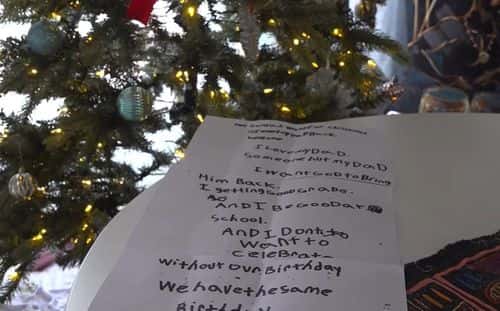 I Love my DaD
Someone Hurt my DaD
I want GOD to Bring
Him Back.
I getting Good Grade.
AnD I Be GooD at
School.
AnD I Dont to
Want to
Celebrate
without Ovn Birthday
We have the same
Birthday